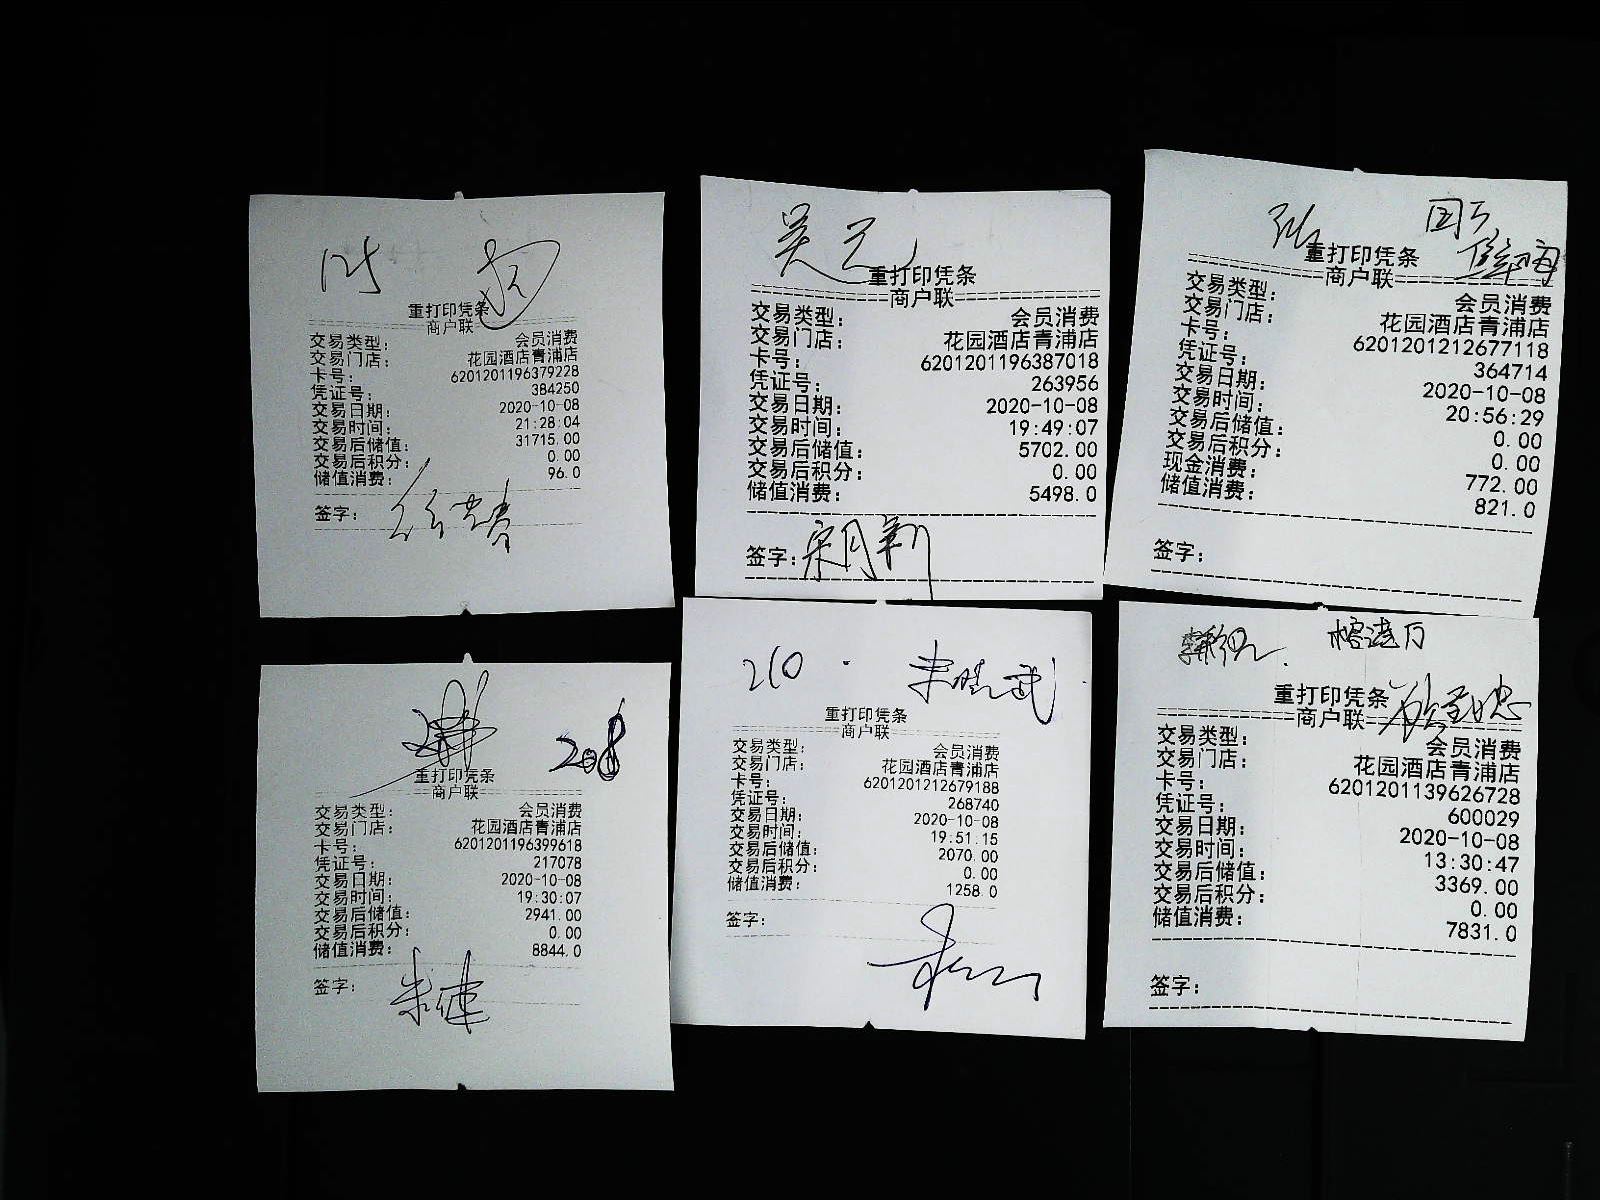 125
重打印凭条
商户联
交易类型: 会员消费
交易门店: 花园酒店青浦店
卡号: 6201201196379228
凭证号: 384250
交易日期: 2020-10-08
交易时间: 21:28:04
交易后储值: 31715.00
交易后积分: 0.00
储值消费: 96.0
签字:
吴
重打印凭条
商户联
交易类型: 会员消费
交易门店: 花园酒店青浦店
卡号: 6201201196387018
凭证号: 263956
交易日期: 2020-10-08
交易时间: 19:49:07
交易后储值: 5702.00
交易后积分: 0.00
储值消费: 5498.0
签字: 宋月新
重打印凭条
商户联
交易类型: 会员消费
交易门店: 花园酒店青浦店
卡号: 6201201212677118
凭证号: 364714
交易日期: 2020-10-08
交易时间: 20:56:29
交易后储值: 0.00
交易后积分: 0.00
现金消费: 772.00
储值消费: 821.0
签字:
208
重打印凭条
商户联
交易类型: 会员消费
交易门店: 花园酒店青浦店
卡号: 6201201196399618
凭证号: 217078
交易日期: 2020-10-08
交易时间: 19:30:07
交易后储值: 2941.00
交易后积分: 0.00
储值消费: 8844.0
签字: 朱健
210 · 朱晓武
重打印凭条
商户联
交易类型: 会员消费
交易门店: 花园酒店青浦店
卡号: 6201201212679188
凭证号: 268740
交易日期: 2020-10-08
交易时间: 19:51:15
交易后储值: 2070.00
交易后积分: 0.00
储值消费: 1258.0
签字:
重打印凭条
商户联
交易类型: 会员消费
交易门店: 花园酒店青浦店
卡号: 6201201139626728
凭证号: 600029
交易日期: 2020-10-08
交易时间: 13:30:47
交易后储值: 3369.00
交易后积分: 0.00
储值消费: 7831.0
签字: